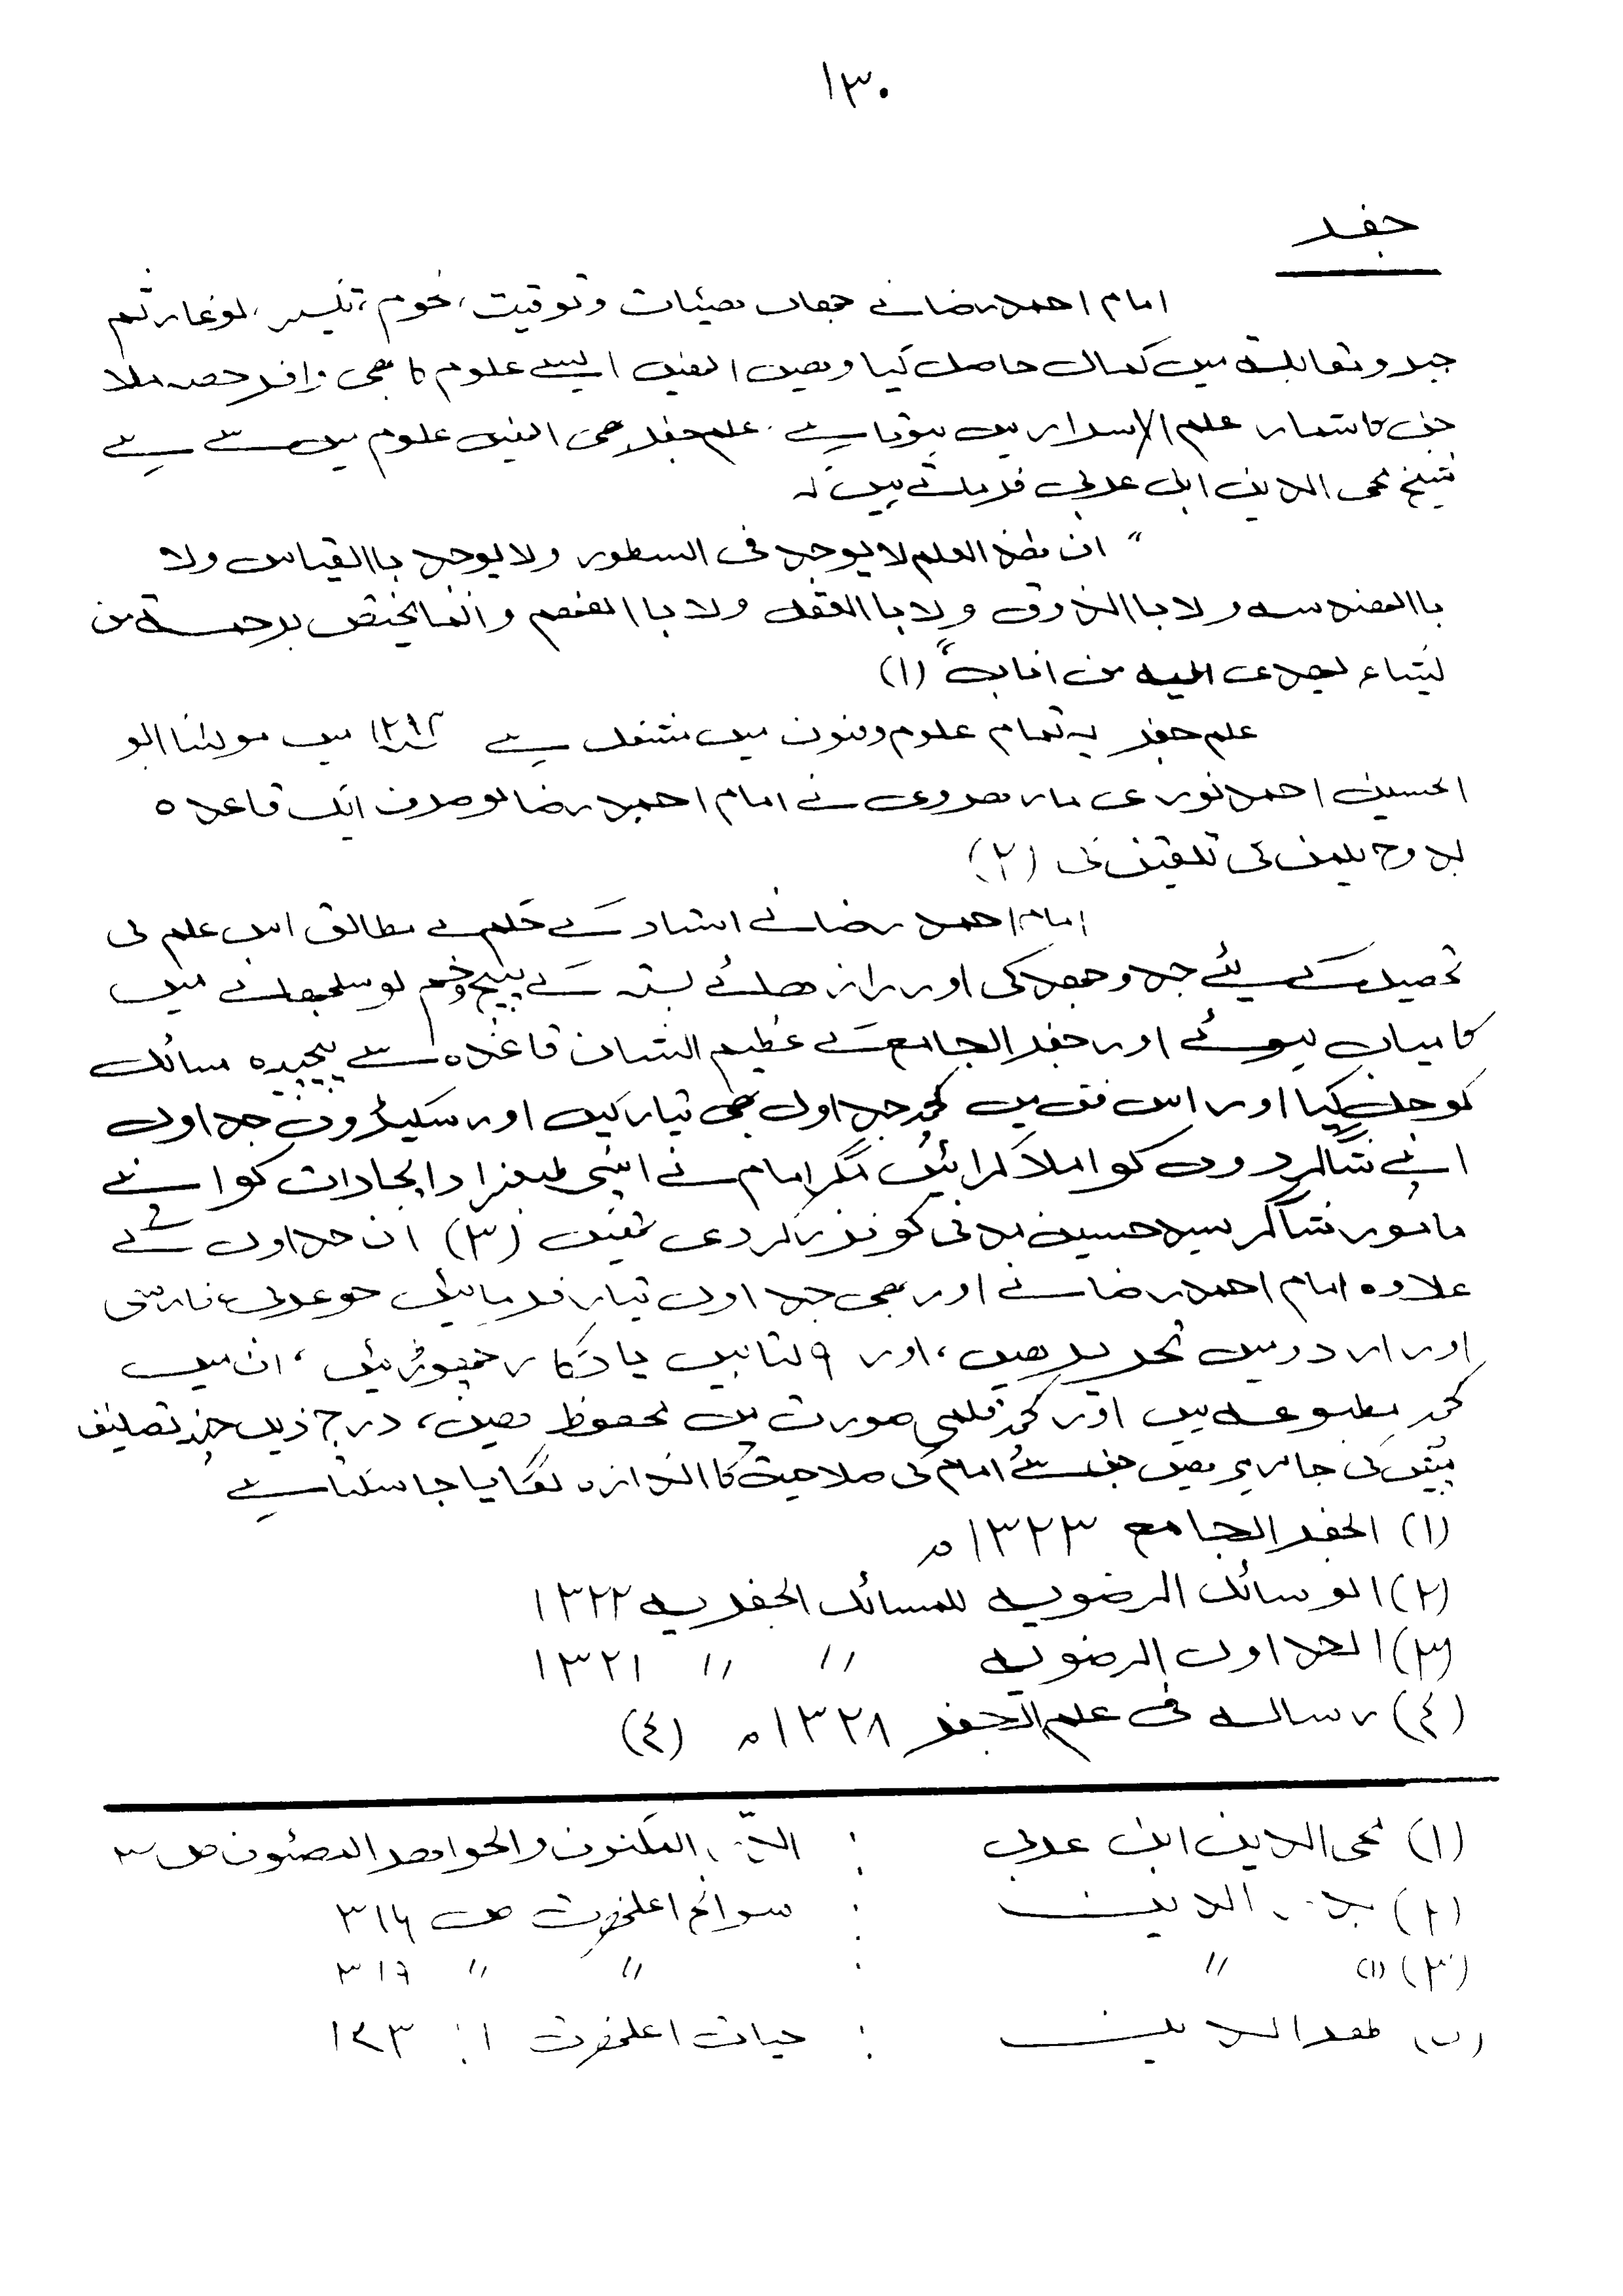 ۱۳۰
جفر
امام احمد رضا نے جہاں ھیئات و توقیت، نجوم، تکسیر، لوغارثم
جبر و مقابلہ میں کمال حاصل کیا وھیں انھیں ایسے علوم کا بھی وافر حصہ ملا
جن کا شمار علم الاسرار میں ہوتا ہے۔ علم جفر بھی انہیں علوم میں سے ہے
شیخ محی الدین ابن عربی فرماتے ہیں کہ
” ان ھذہ العلم لا یوجد فی السطور ولا یوجد باالقیاس ولا
باالھندسہ ولا باالذوق ولا باالعقل ولا باالفھم وانما یختص برحمتہ من
یشاء یھدی الیہ من اناب“ (۱)
علم جفر یہ تمام علوم وفنون میں مشکل ہے ۱۲۹۴ میں مولٰنا ابو
الحسین احمد نوری مارھروی نے امام احمد رضا کو صرف ایک قاعدہ
بدوح یلمن کی تلقین کی (۲)
امام احمد رضا نے استاد کے حکم کے مطابق اس علم کی
تحصیل کے لئے جد و جھد کی اور راز ھائے بستہ کے پیچ و خم کو سلجھانے میں
کامیاب ہوئے اور جفر الجامع کے عظیم الشان قاعدہ سے پیچیدہ مسائل
کو حل کیا اور اس فن میں کچھ جداول بھی تیار کیں اور سکیڑوں جداول
اپنے شاگردوں کو املا کرائیں مگر امام نے اپنی طبعزاد ایجادات کو اپنے
مامور شاگر سید حسین مدنی کو نذر کر دی تھیں (۳) ان جداول کے
علاوہ امام احمد رضا نے اور بھی جداول تیار فرمائیں جو عربی، فارسی
اور اردو میں تحریر ھیں، اور ۹ کتابیں یادگار چھوڑیں، ان میں
کچھ مطبوعہ ہیں اور کچھ قلمی صورت میں محفوظ ھیں، درج ذیل چند تصانیف
پیش کی جا رہی ھیں جن سے امام کی صلاحیت کا اندازہ لگایا جا سکتا ہے
(۱) الجفر الجامع ۱۳۲۳ھ
(۲) الوسائل الرضویہ للمسائل الجفریہ ۱۳۲۲
(۳) الجداول الرضویہ // // ۱۳۲۱
(٤) رسالہ فی علم الجفر ۱۳۲۸ھ (٤)
(۱) محی الدین ابن عربی : المکنون والجواھر المصئون ص ۳
(۲) الدین : سوانح اعلحضرت ص ۳۱۶
(۳) (۱) // : // // ۳۱۶
ظفر الدین : حیات اعلحضرت ۱: ۱٤۳